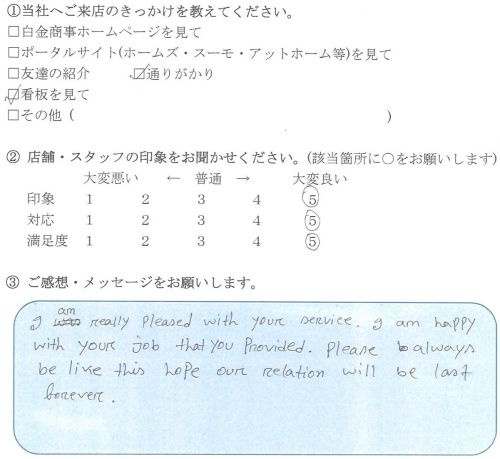 ①当社へご来店のきっかけを教えてください。
□白金商事ホームページを見て
□ポータルサイト(ホームズ・スーモ・アットホーム等)を見て
□友達の紹介 ☑通りがかり
☑看板を見て
□その他 ( )
② 店舗・スタッフの印象をお聞かせください。(該当箇所に○をお願いします)
大変悪い ← 普通 → 大変良い
印象 1 2 3 4 5
対応 1 2 3 4 5
満足度 1 2 3 4 5
③ ご感想・メッセージをお願いします。
I am really pleased with your service. I am happy
with your job that you provided. please always
be like this hope our relation will be last
forever.